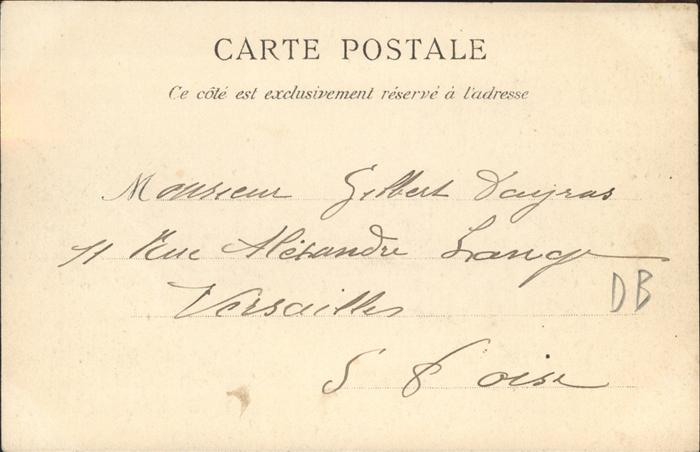 CARTE POSTALE
Ce côté est exclusivement réservé à l'adresse
Monsieur Gilbert Dayras
11 Rue Alexandre Lange
Versailles
DB
S & oise